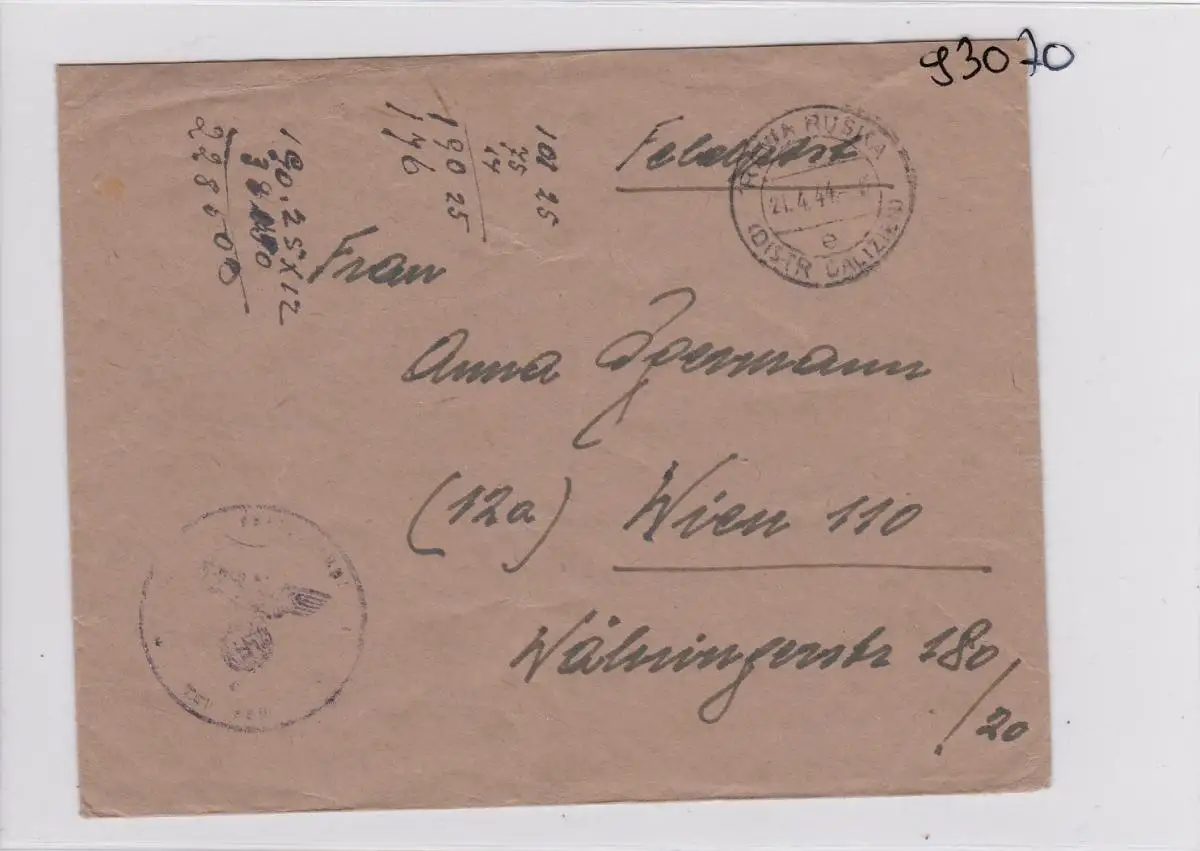 93070
Feldpost
RAWA RUSKA
21.4.44
e
(DISTR GALIZIEN)
101 25
75
14
190 25
146
190.25 x 12
22800
Frau
Anna
(12a) Wien 110
Währingerstr 180/20